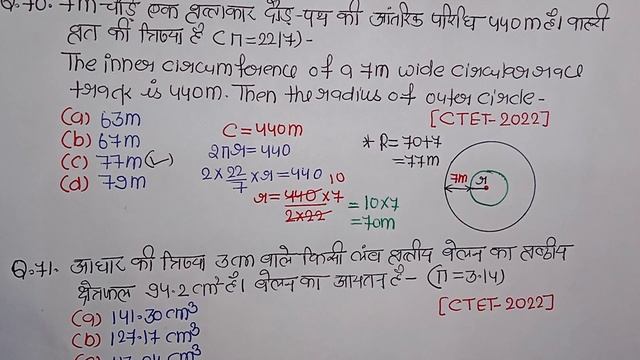 Q.70. 7m-चौड़े एक वृत्ताकार दौड़-पथ की आंतरिक परिधि 440m है। बाहरी
वृत्त की त्रिज्या है (π=22/7)-
The inner circumference of a 7m wide circular race
track is 440m. Then the radius of outer circle-
[CTET-2022]
(a) 63m
(b) 67m
(c) 77m (✓)
(d) 79m
C = 440m
2πr = 440
2 × 22/7 × r = 440
r = 440 × 7 / 2×22
10
= 10×7
= 70m
* R = 70+7
= 77m
7m r
Q.71. आधार की त्रिज्या 3cm वाले किसी लंब वृत्तीय बेलन का वक्रीय
क्षेत्रफल 94.2cm² है। बेलन का आयतन है- (π=3.14)
[CTET-2022]
(a) 141.30 cm³
(b) 127.17 cm³